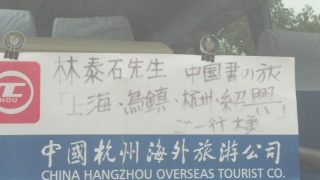 林泰石先生 中国書の旅
「上海・烏鎮・杭州・紹興」
ご一行様
HOU
中國杭州海外旅游公司
CHINA HANGZHOU OVERSEAS TOURIST CO.